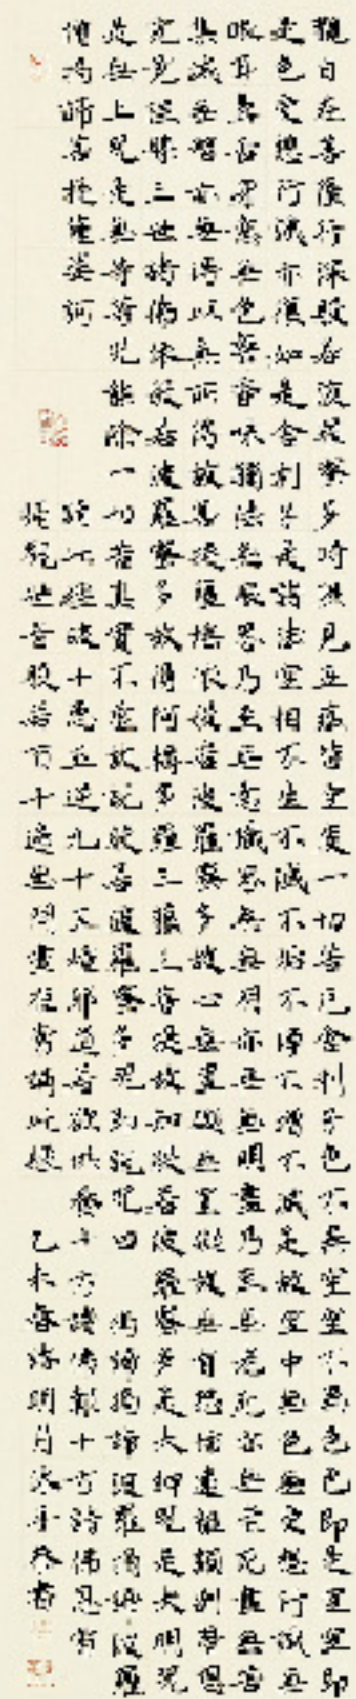 觀自在菩薩行深般若波羅蜜多時照見五蘊皆空度一切苦厄舍利子色不異空空不異色色即是空空即
是色受想行識亦復如是舍利子是諸法空相不生不滅不垢不淨不增不減是故空中無色無受想行識無
眼耳鼻舌身意無色聲香味觸法無眼界乃至無意識界無無明亦無無明盡乃至無老死亦無老死盡無苦
集滅道無智亦無得以無所得故菩提薩埵依般若波羅蜜多故心無罣礙無罣礙故無有恐怖遠離顛倒夢想
究竟涅槃三世諸佛依般若波羅蜜多故得阿耨多羅三藐三菩提故知般若波羅蜜多是大神咒是大明咒
是無上咒是無等等咒能除一切苦真實不虛故說般若波羅蜜多咒即說咒曰 揭諦揭諦波羅揭諦波羅
僧揭諦菩提薩婆訶 誦此經破十惡五逆九十五種邪道若欲供養十方諸佛報十方諸佛恩當
誦觀世音般若百十遍無問晝夜常誦此經 乙未春明月